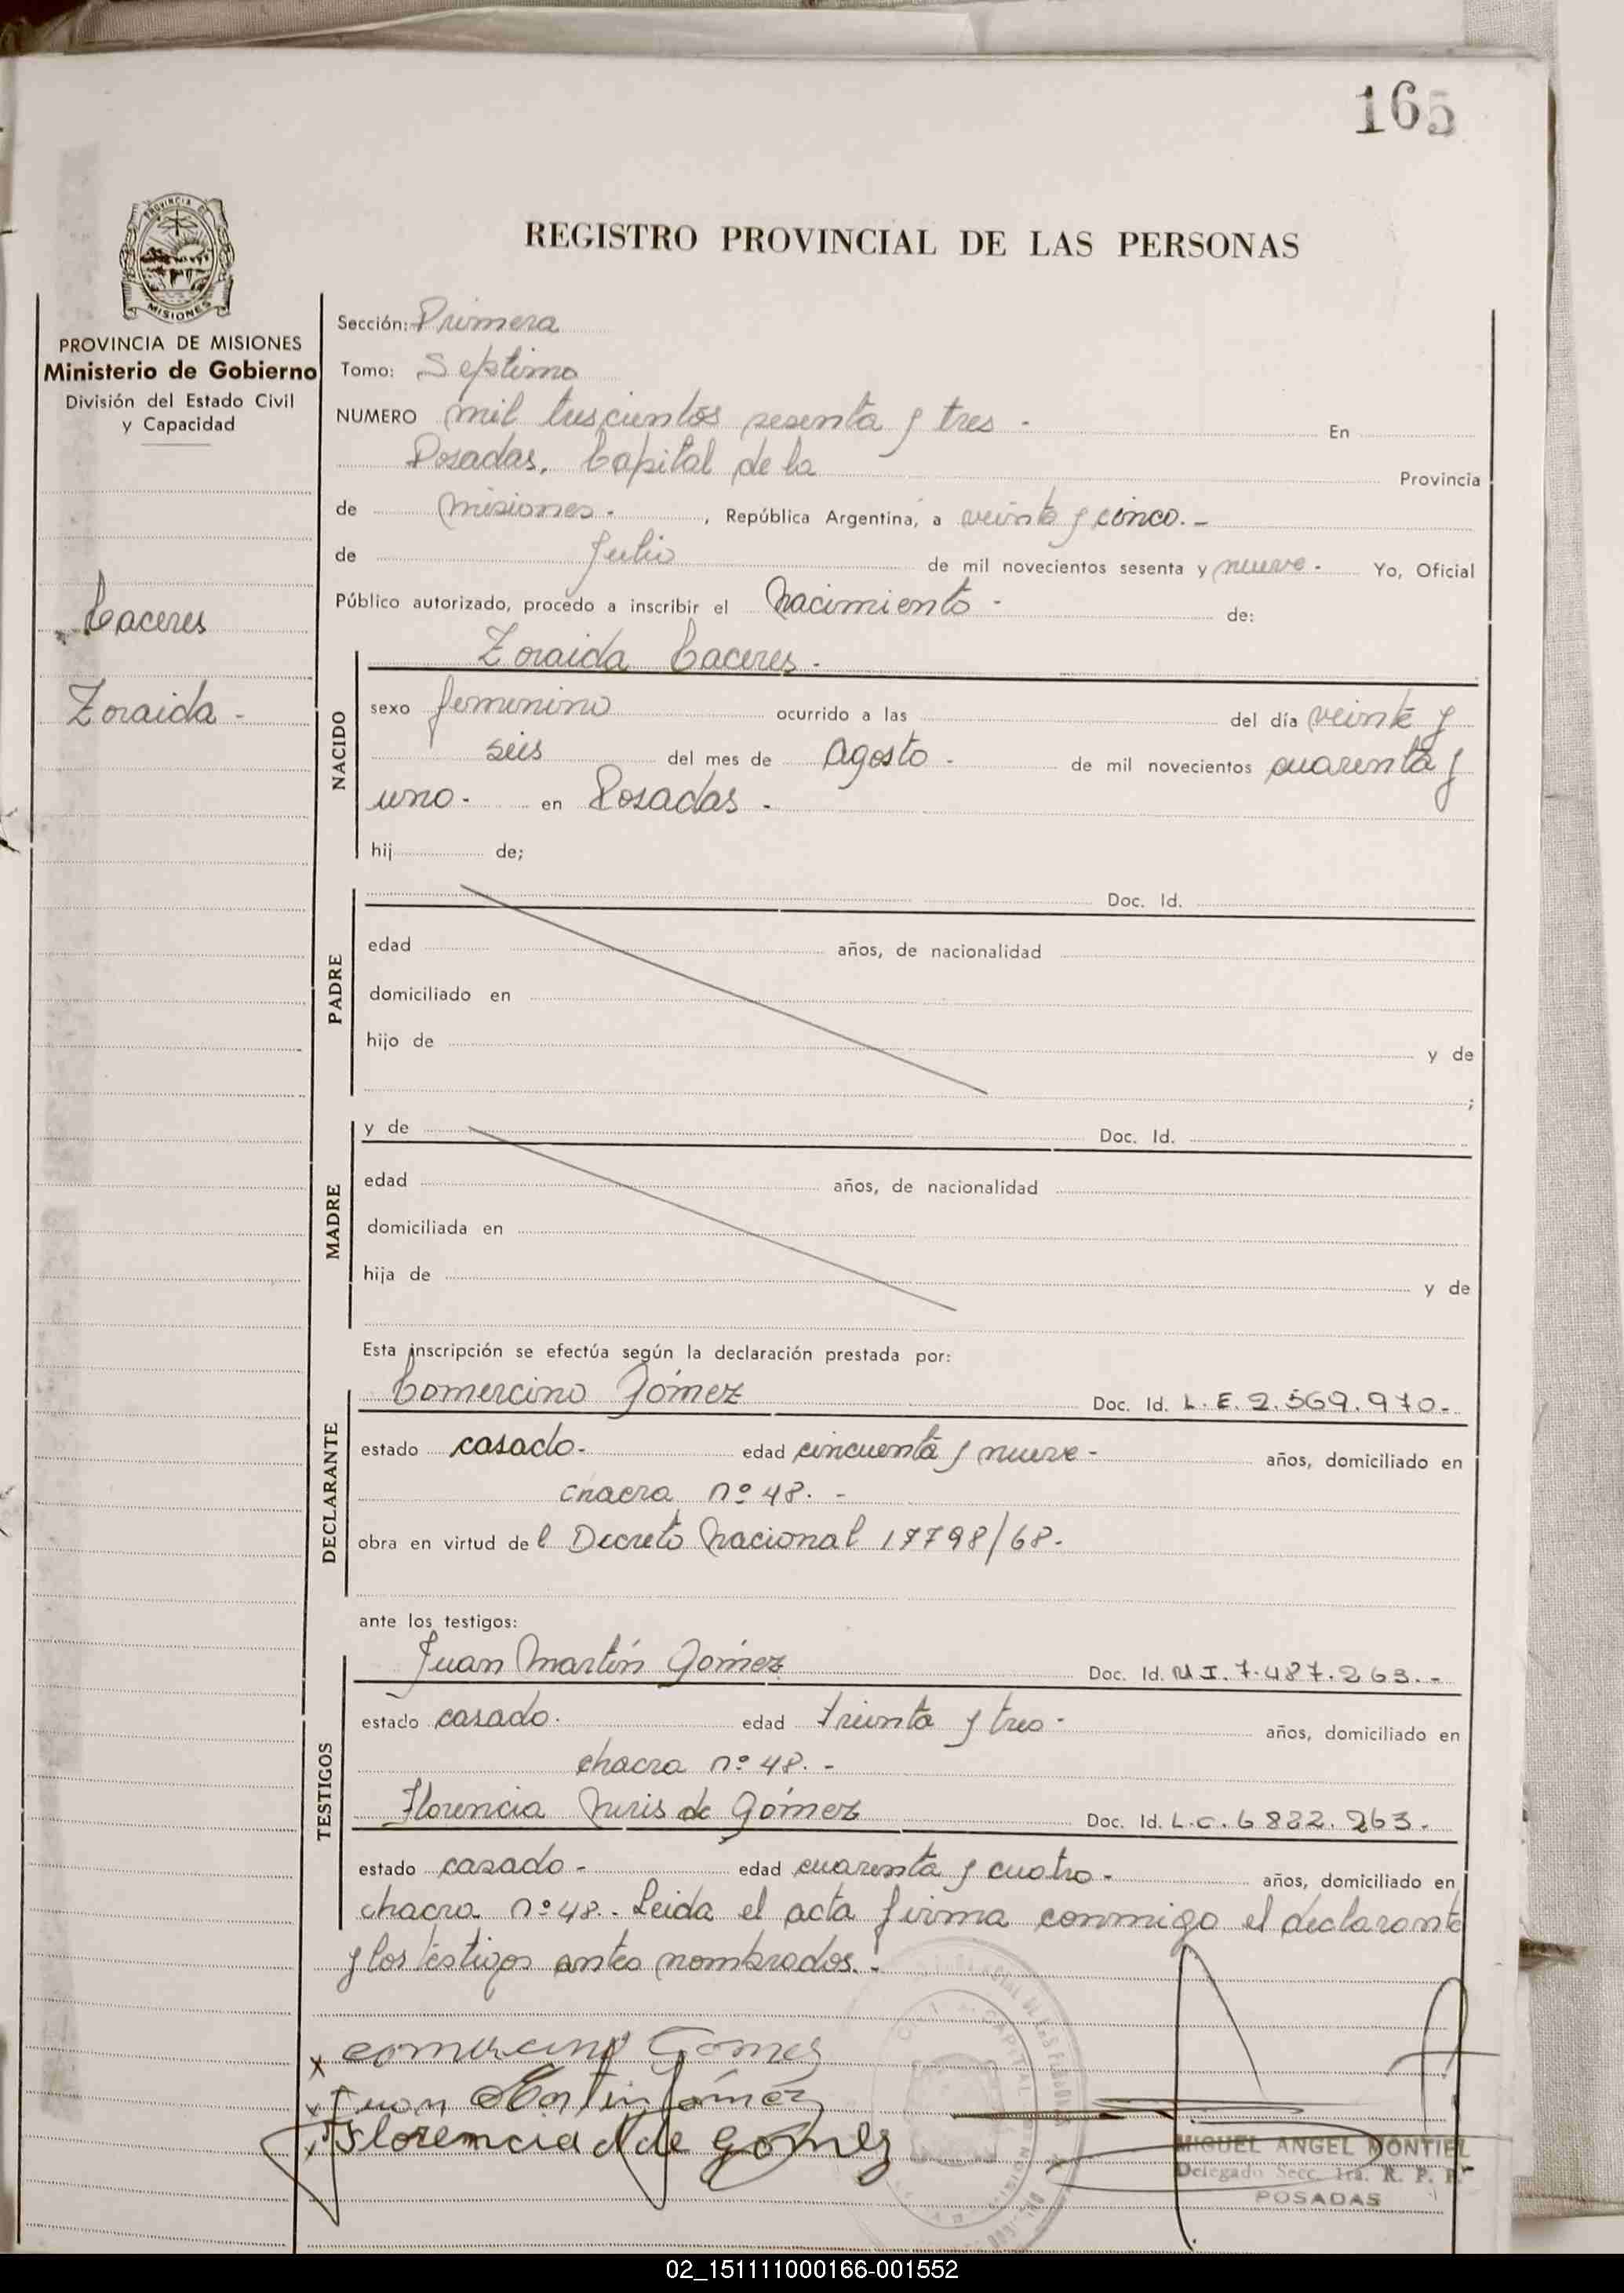 165
PROVINCIA DE MISIONES
REGISTRO PROVINCIAL DE LAS PERSONAS
PROVINCIA DE MISIONES
Ministerio de Gobierno
División del Estado Civil
y Capacidad
Caceres
Zoraida -
Sección: Primera
Tomo: Septimo
NUMERO mil trescientos sesenta y tres - En
Posadas, Capital de la Provincia
de Misiones - , República Argentina, a veinte y cinco. -
de Julio de mil novecientos sesenta y nueve - Yo, Oficial
Público autorizado, procedo a inscribir el Nacimiento - de:
NACIDO
Zoraida Caceres -
sexo femenino ocurrido a las del día veinte y
seis del mes de Agosto - de mil novecientos cuarenta y
uno - en Posadas -
hij de;
PADRE
Doc. Id.
edad años, de nacionalidad
domiciliado en
hijo de y de
;
MADRE
y de Doc. Id.
edad años, de nacionalidad
domiciliada en
hija de y de
Esta inscripción se efectúa según la declaración prestada por:
DECLARANTE
Comercino Gómez Doc. Id. L. E. 2.569.970-
estado casado - edad cincuenta y nueve - años, domiciliado en
chacra nº 48. -
obra en virtud del Decreto Nacional 17798/68-
ante los testigos:
TESTIGOS
Juan Martín Gómez Doc. Id. M I. 7.487.263. -
estado casado. edad treinta y tres - años, domiciliado en
chacra nº 48. -
Florencia de Gómez Doc. Id. L.C. 6822.263-
estado casado - edad cuarenta y cuatro - años, domiciliado en
chacra nº 48. - Leida el acta firma conmigo el declarante
y los testigos antes nombrados. -
x comercino Gomez
x Juan Martin Gómez
x Florencia N de Gomez
MIGUEL ANGEL MONTIEL
Delegado Secc. 1ra. R. P. P.
POSADAS
02_151111000166-001552